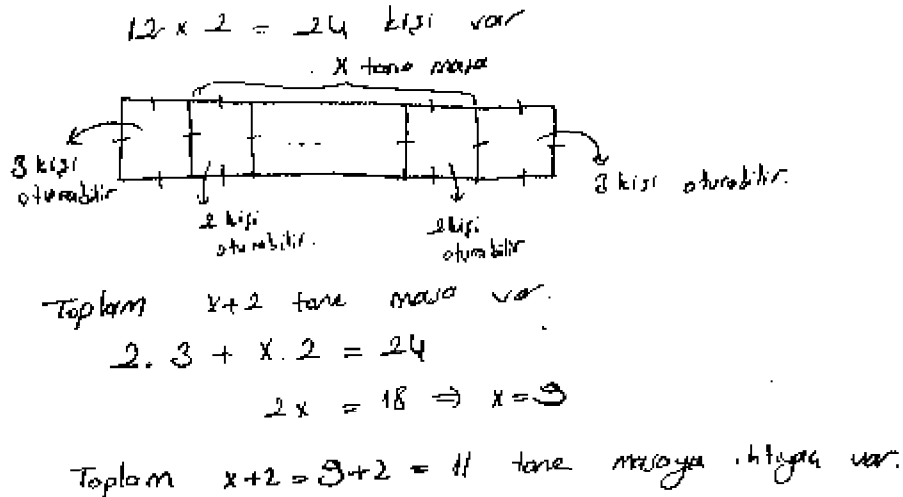 12 x 2 = 24 kişi var
x tane masa
...
3 kişi oturabilir
3 kişi oturabilir.
2 kişi oturabilir.
2 kişi oturabilir
Toplam x+2 tane masa var.
2.3 + x.2 = 24
2x = 18 ⇒ x=9
Toplam x+2=9+2 = 11 tane masaya ihtiyaç var.